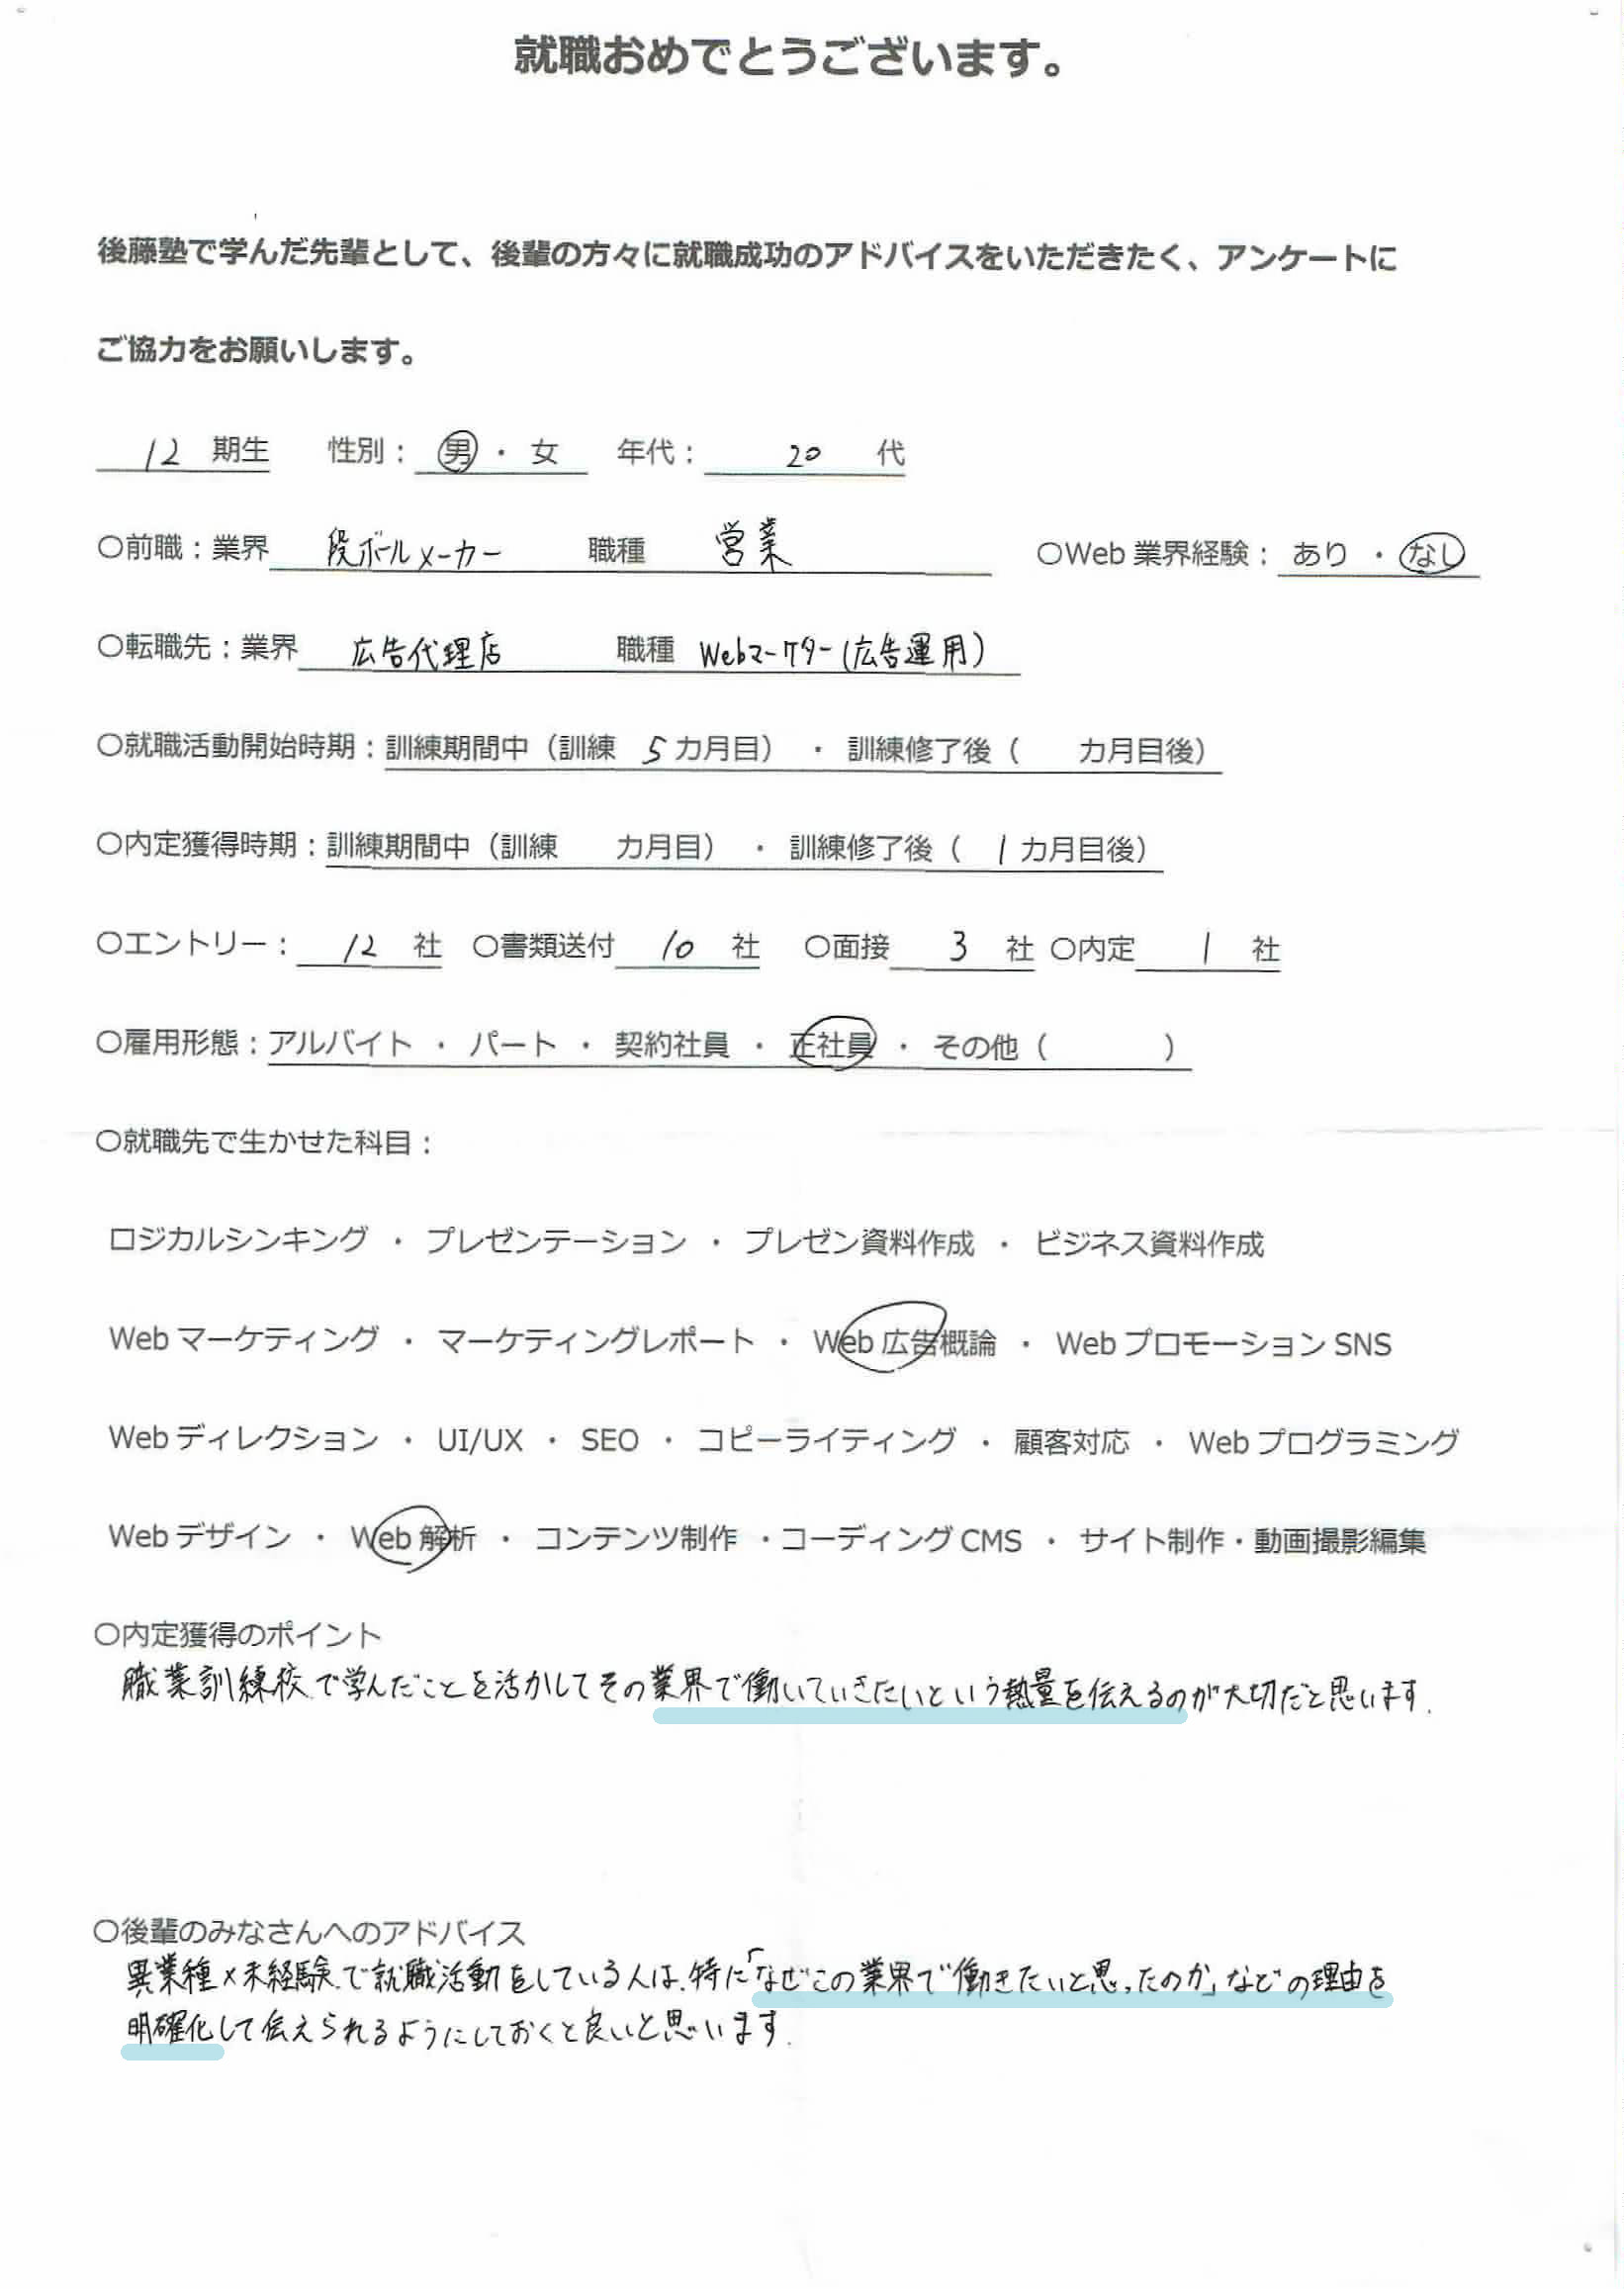 就職おめでとうございます。
後藤塾で学んだ先輩として、後輩の方々に就職成功のアドバイスをいただきたく、アンケートに
ご協力をお願いします。
12 期生 性別： 男 ・ 女 年代： 20 代
○前職：業界 段ボールメーカー 職種 営業 ○Web 業界経験： あり ・ なし
○転職先：業界 広告代理店 職種 Webマーケター(広告運用)
○就職活動開始時期：訓練期間中（訓練 5 カ月目） ・ 訓練修了後（ カ月目後）
○内定獲得時期：訓練期間中（訓練 カ月目） ・ 訓練修了後（ 1 カ月目後）
○エントリー： 12 社 ○書類送付 10 社 ○面接 3 社 ○内定 1 社
○雇用形態：アルバイト ・ パート ・ 契約社員 ・ 正社員 ・ その他（ ）
○就職先で生かせた科目：
ロジカルシンキング ・ プレゼンテーション ・ プレゼン資料作成 ・ ビジネス資料作成
Web マーケティング ・ マーケティングレポート ・ Web 広告概論 ・ Web プロモーション SNS
Web ディレクション ・ UI/UX ・ SEO ・ コピーライティング ・ 顧客対応 ・ Web プログラミング
Web デザイン ・ Web 解析 ・ コンテンツ制作 ・コーディング CMS ・ サイト制作・動画撮影編集
○内定獲得のポイント
職業訓練校で学んだことを活かしてその業界で働いていきたいという熱量を伝えるのが大切だと思います.
○後輩のみなさんへのアドバイス
異業種×未経験で就職活動をしている人は、特に「なぜこの業界で働きたいと思ったのか」などの理由を
明確化して伝えられるようにしておくと良いと思います.